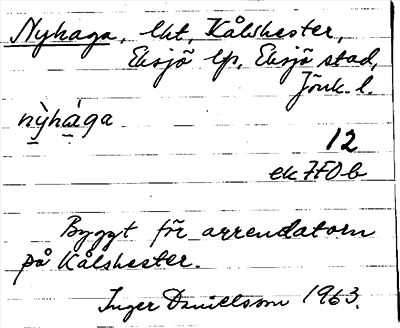 Nyhaga, lht, Kålshester,
Eksjö lfs, Eksjö stad,
Jönk. l.
nỳhága
12
ek 7F0b
Byggt för arrendatorn
på Kålshester.
Inger Danielsson 1963.